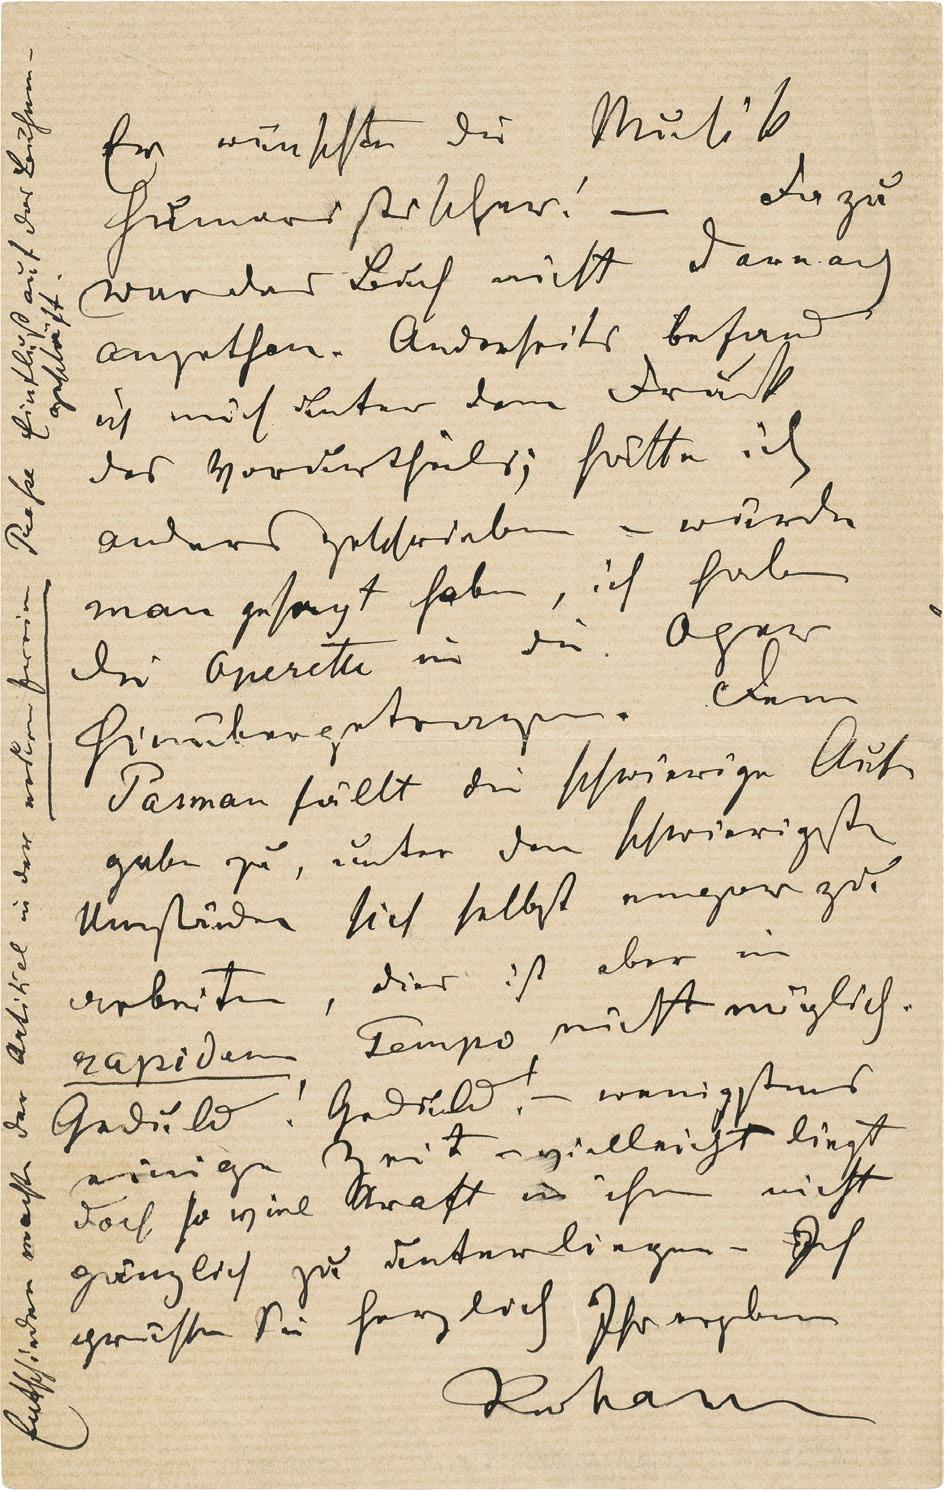 Er wünschte die Musik
humoristischer! — Dazu
war das Buch nicht darnach
angethan. Anderseits befand
ich mich unter dem Druck
des Vorurtheils; hätte ich
anders geschrieben – würde
man gesagt haben, ich habe
die Operette in die Oper
hinübergetragen. Dem
Pasman fällt die schwierige Auf-
gabe zu, unter den schwierigsten
Umständen sich selbst empor zu
arbeiten, dies ist aber im
rapiden Tempo nicht möglich.
Geduld! Geduld! – wenigstens
einige Zeit – vielleicht liegt
doch so viel Kraft in ihm nicht
gänzlich zu unterliegen – Ich
grüße Sie herzlich Ihr ergeben
Entschieden macht der Artikel in der neuen freien Presse Einfluß auf das
geschäft.